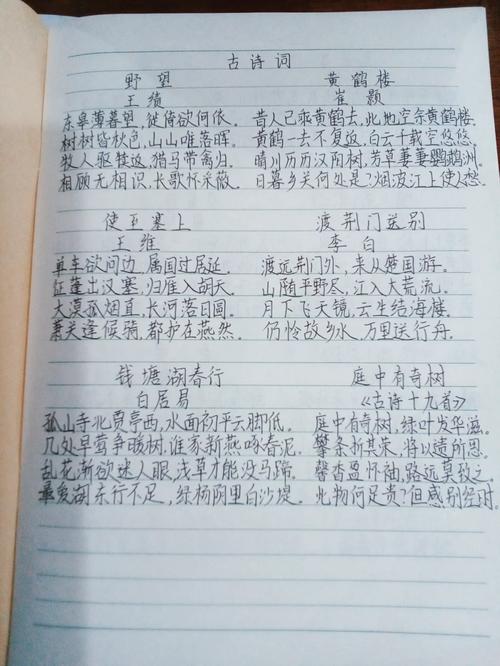 古诗词
野望
王绩
东皋薄暮望,徙倚欲何依。
树树皆秋色,山山唯落晖。
牧人驱犊返,猎马带禽归。
相顾无相识,长歌怀采薇。
黄鹤楼
崔颢
昔人已乘黄鹤去,此地空余黄鹤楼。
黄鹤一去不复返,白云千载空悠悠。
晴川历历汉阳树,芳草萋萋鹦鹉洲。
日暮乡关何处是?烟波江上使人愁。
使至塞上
王维
单车欲问边,属国过居延。
征蓬出汉塞,归雁入胡天。
大漠孤烟直,长河落日圆。
萧关逢候骑,都护在燕然。
渡荆门送别
李白
渡远荆门外,来从楚国游。
山随平野尽,江入大荒流。
月下飞天镜,云生结海楼。
仍怜故乡水,万里送行舟。
钱塘湖春行
白居易
孤山寺北贾亭西,水面初平云脚低。
几处早莺争暖树,谁家新燕啄春泥。
乱花渐欲迷人眼,浅草才能没马蹄。
最爱湖东行不足,绿杨阴里白沙堤。
庭中有奇树
《古诗十九首》
庭中有奇树,绿叶发华滋。
攀条折其荣,将以遗所思。
馨香盈怀袖,路远莫致之。
此物何足贵?但感别经时。